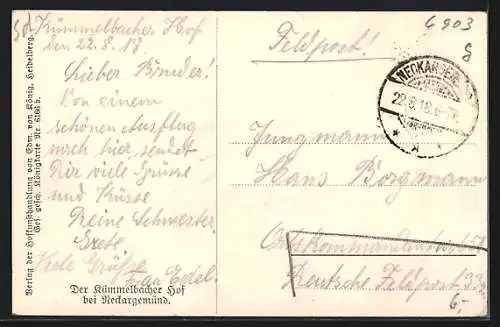 Kümmelbacher Hof
den 22.8.18.
Lieber Bruder!
Von einem
schönen Ausflug
nach hier sendet
Dir viele Grüsse
und Küsse
Deine Schwester
Grete.
Viele Grüße
Der Kümmelbacher Hof
bei Neckargemünd.
Verlag der Hofkunsthandlung von Edm. von König, Heidelberg.
Ges. gesch. Königkarte Nr. 6166 b.
6903
Feldpost!
NECKARGEMÜND
22.8.18.
Jungmann
Hans Borgmann
Deutsche Feldpost 33
6,-